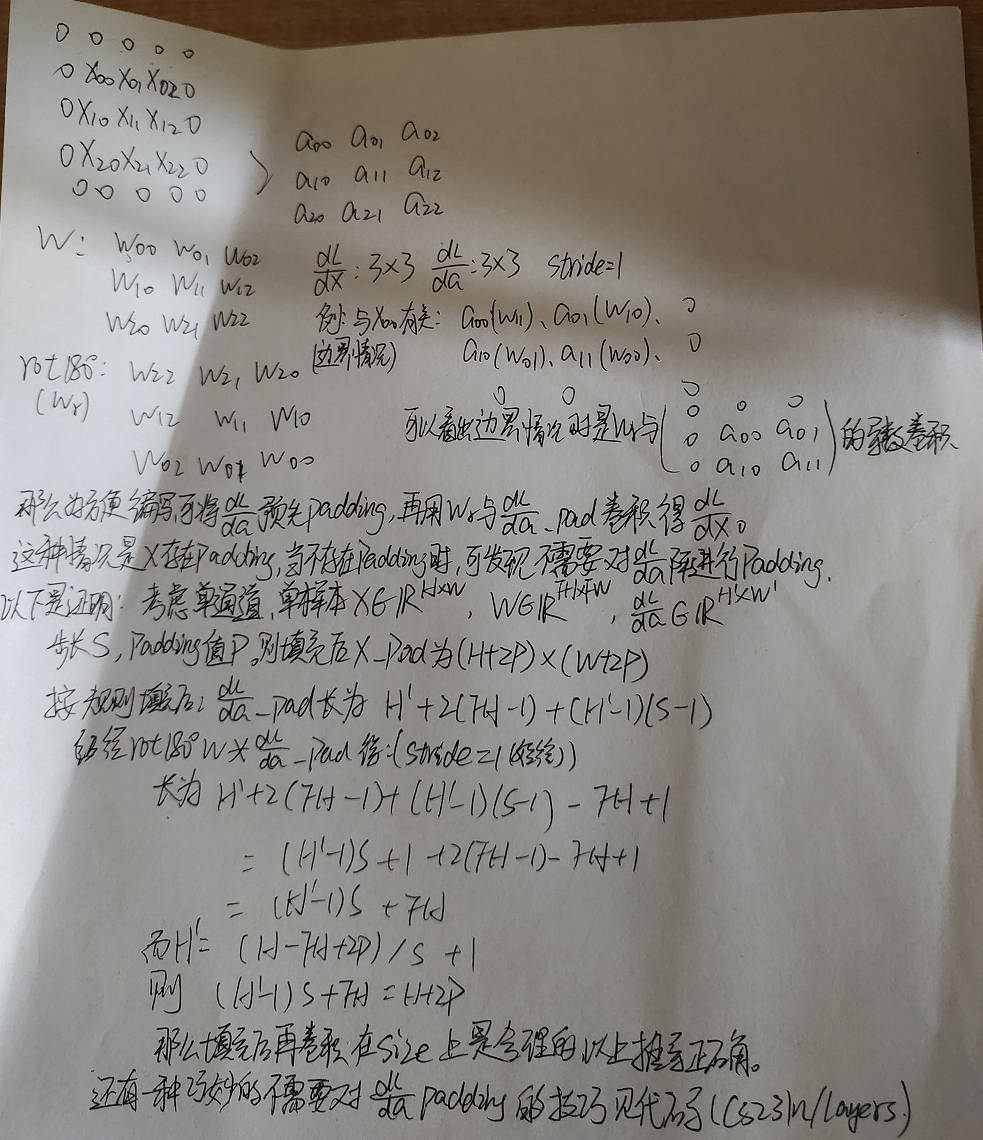 0 0 0 0 0
0 X00 X01 X02 0
0 X10 X11 X12 0
0 X20 X21 X22 0
0 0 0 0 0
>
a00 a01 a02
a10 a11 a12
a20 a21 a22
W: W00 W01 W02
W10 W11 W12
W20 W21 W22
dL/dX : 3×3 dL/da : 3×3 stride=1
例: 与X00有关: a00(W11)、a01(W10)、0
(边界情况) a10(W01)、a11(W00)、0
0 0 0
rot180°: W22 W21 W20
(Wr) W12 W11 W10
W02 W01 W00
可以看出边界情况时是Wr与(0 0 0
0 a00 a01
0 a10 a11)的离散卷积
那么为方便编写,可将dL/da预先padding,再用Wr与dL/da_pad卷积得dL/dX。
这种情况是X存在Padding,当不存在Padding时,可发现不需要对dL/da进行Padding.
以下是证明: 考虑单通道,单样本X∈R^H×W, W∈R^FH×FW, dL/da∈R^H'×W'
步长S, Padding值P。则填充后X_pad为(H+2P)×(W+2P)
按规则填充后: dL/da_pad长为 H'+2(FH-1)+(H'-1)(S-1)
经rot180°W * dL/da_pad得:(stride=1())
长为 H'+2(FH-1)+(H'-1)(S-1)-FH+1
= (H'-1)S+1+2(FH-1)-FH+1
= (H'-1)S+FH
而H'= (H-FH+2P)/S+1
则 (H'-1)S+FH=H+2P
那么填充后再卷积在size上是合理的以上推导正确。
还有一种巧妙的不需要对dL/da padding的技巧见代码(CS231n/layers.)